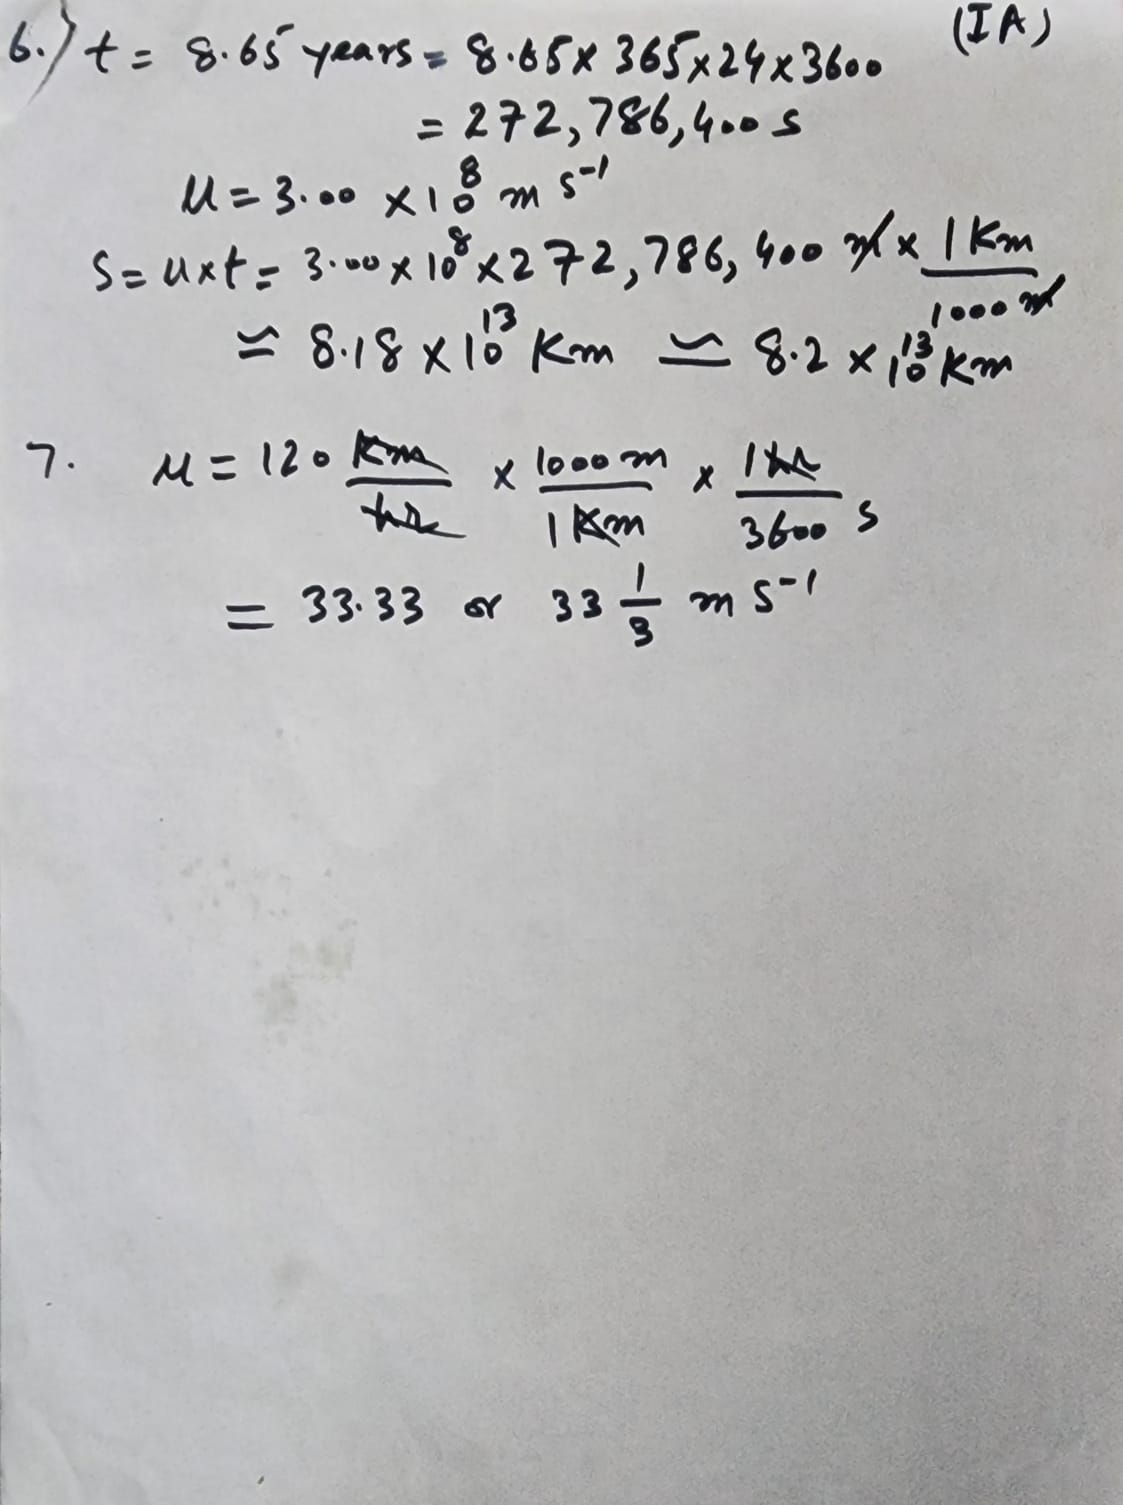 (IA)
6.) t = 8.65 years = 8.65 x 365 x 24 x 3600
= 272,786,400 s
u = 3.00 x 10⁸ m s⁻¹
s = u x t = 3.00 x 10⁸ x 272,786,400 m x 1 Km / 1000 m
≃ 8.18 x 10¹³ Km ≃ 8.2 x 10¹³ Km
7. u = 120 Km/hr x 1000 m / 1 Km x 1 hr / 3600 s
= 33.33 or 33 1/3 m s⁻¹